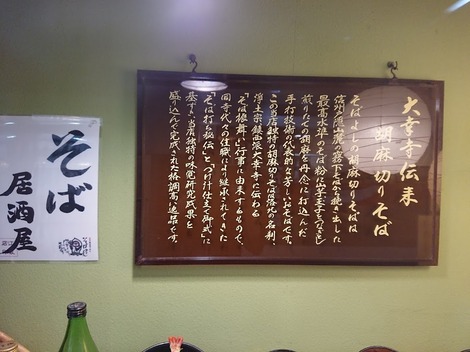 大幸寺伝来
胡麻切りそば
そばよしの胡麻切りそばは
信州飯山産の霧下そばを挽き出した
最高水準のそば粉に寒玉子をつなぎとし
煎りたての胡麻を丹念に打込んだ
手打技術の代表的な芳しいおそばです。
この当店独特の胡麻切りそばは洛北の名刹、
浄土宗鎮西派大幸寺に伝わる
「そば振舞い」行事に由来するもので、
同寺代々の住職により継承されてきた
「そば打ち秘伝」と「つけ汁仕立て御式」に
基ずき、当店独特の味覚研究成果を
盛り込んで完成された格調高い逸品です。
そば
居酒屋